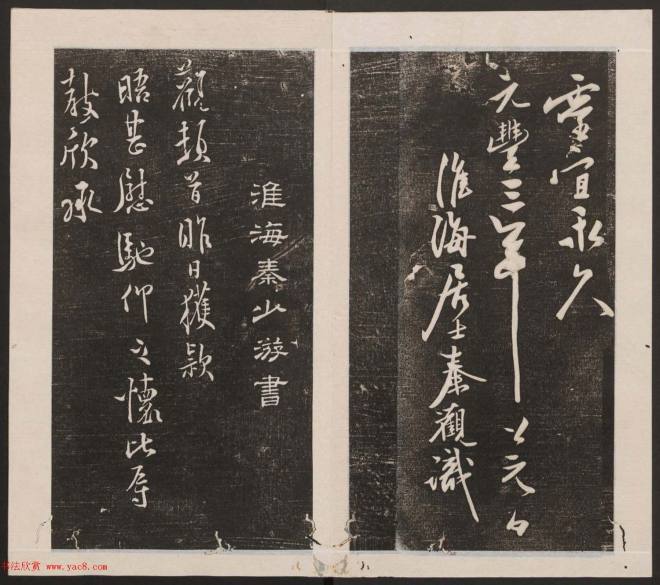 靈宜永久
元豐三年上元日
淮海居士秦觀識
淮海秦少游書
觀頓首昨日獲款
晤甚慰馳仰之懷比辱
教欣承
书法欣赏 www.yac8.com